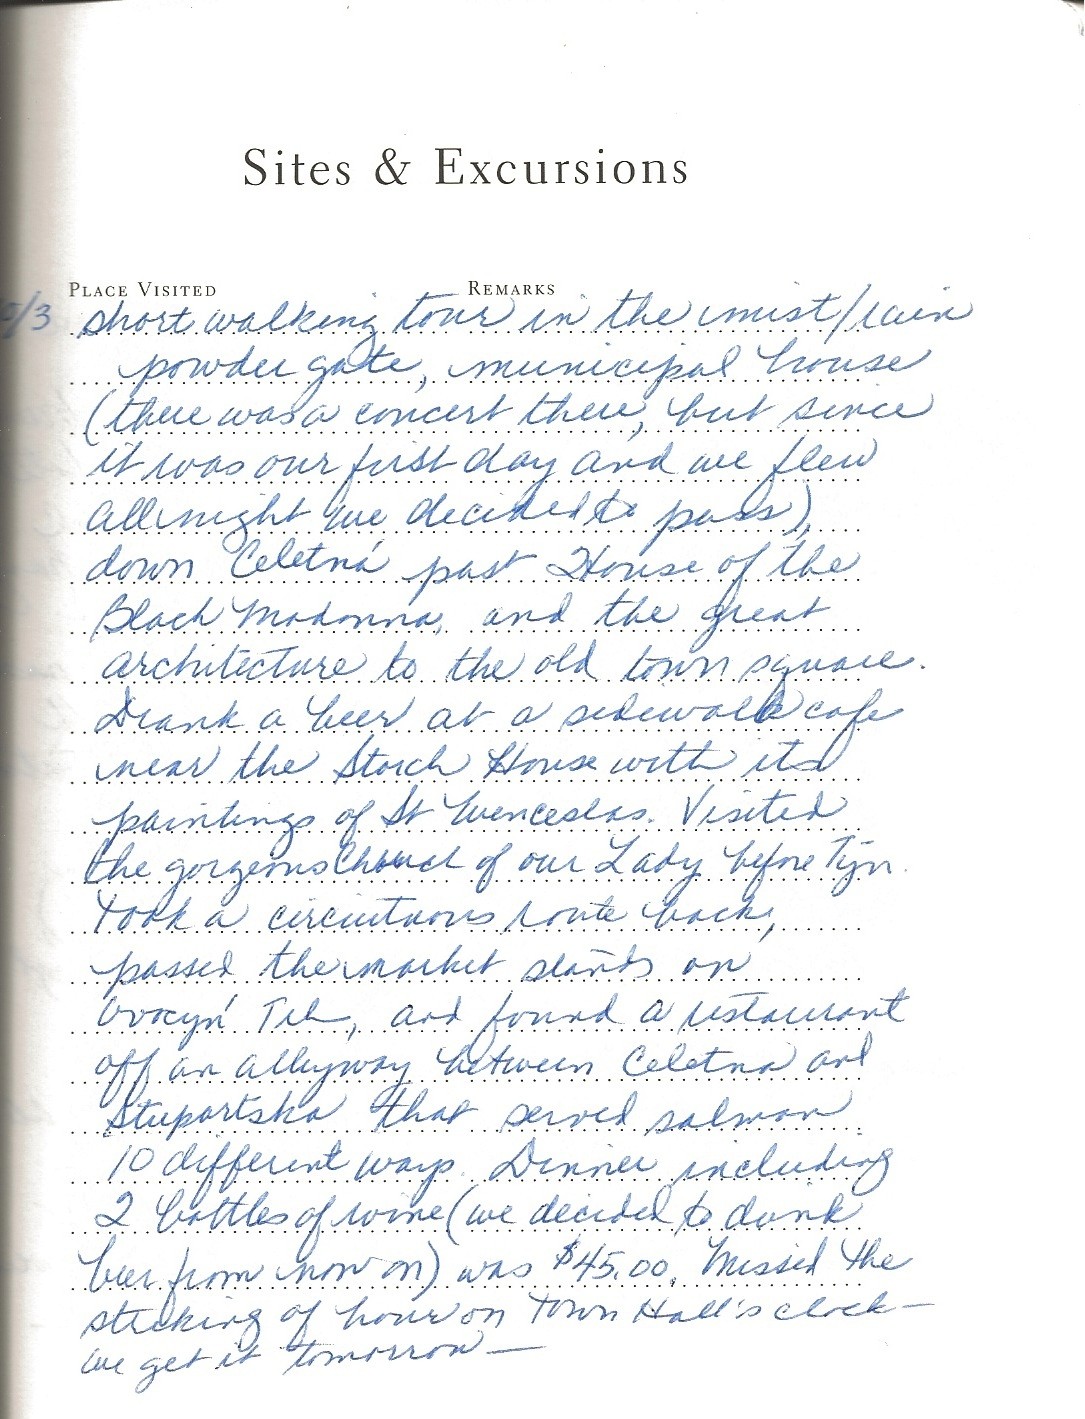 Sites & Excursions
PLACE VISITED REMARKS
/3 short walking tour in the mist/rain
powder gate, municipal house
(there was a concert there, but since
it was our first day and we flew
all night we decided to pass),
down Celetná past House of the
Black Madonna, and the great
architecture to the old town square.
Drank a beer at a sidewalk cafe
near the Storch House with its
paintings of St Wenceslas. Visited
the gorgeous Church of our Lady before Tyn.
Took a circuitous route back,
passed the market stands on
Ovocyn' Trh, and found a restaurant
off an alleyway between Celetna and
Stupartska that served salmon
10 different ways. Dinner including
2 bottles of wine (we decided to drink
beer from now on) was $45.00. Missed the
striking of hour on Town Hall's clock —
we get it tomorrow —